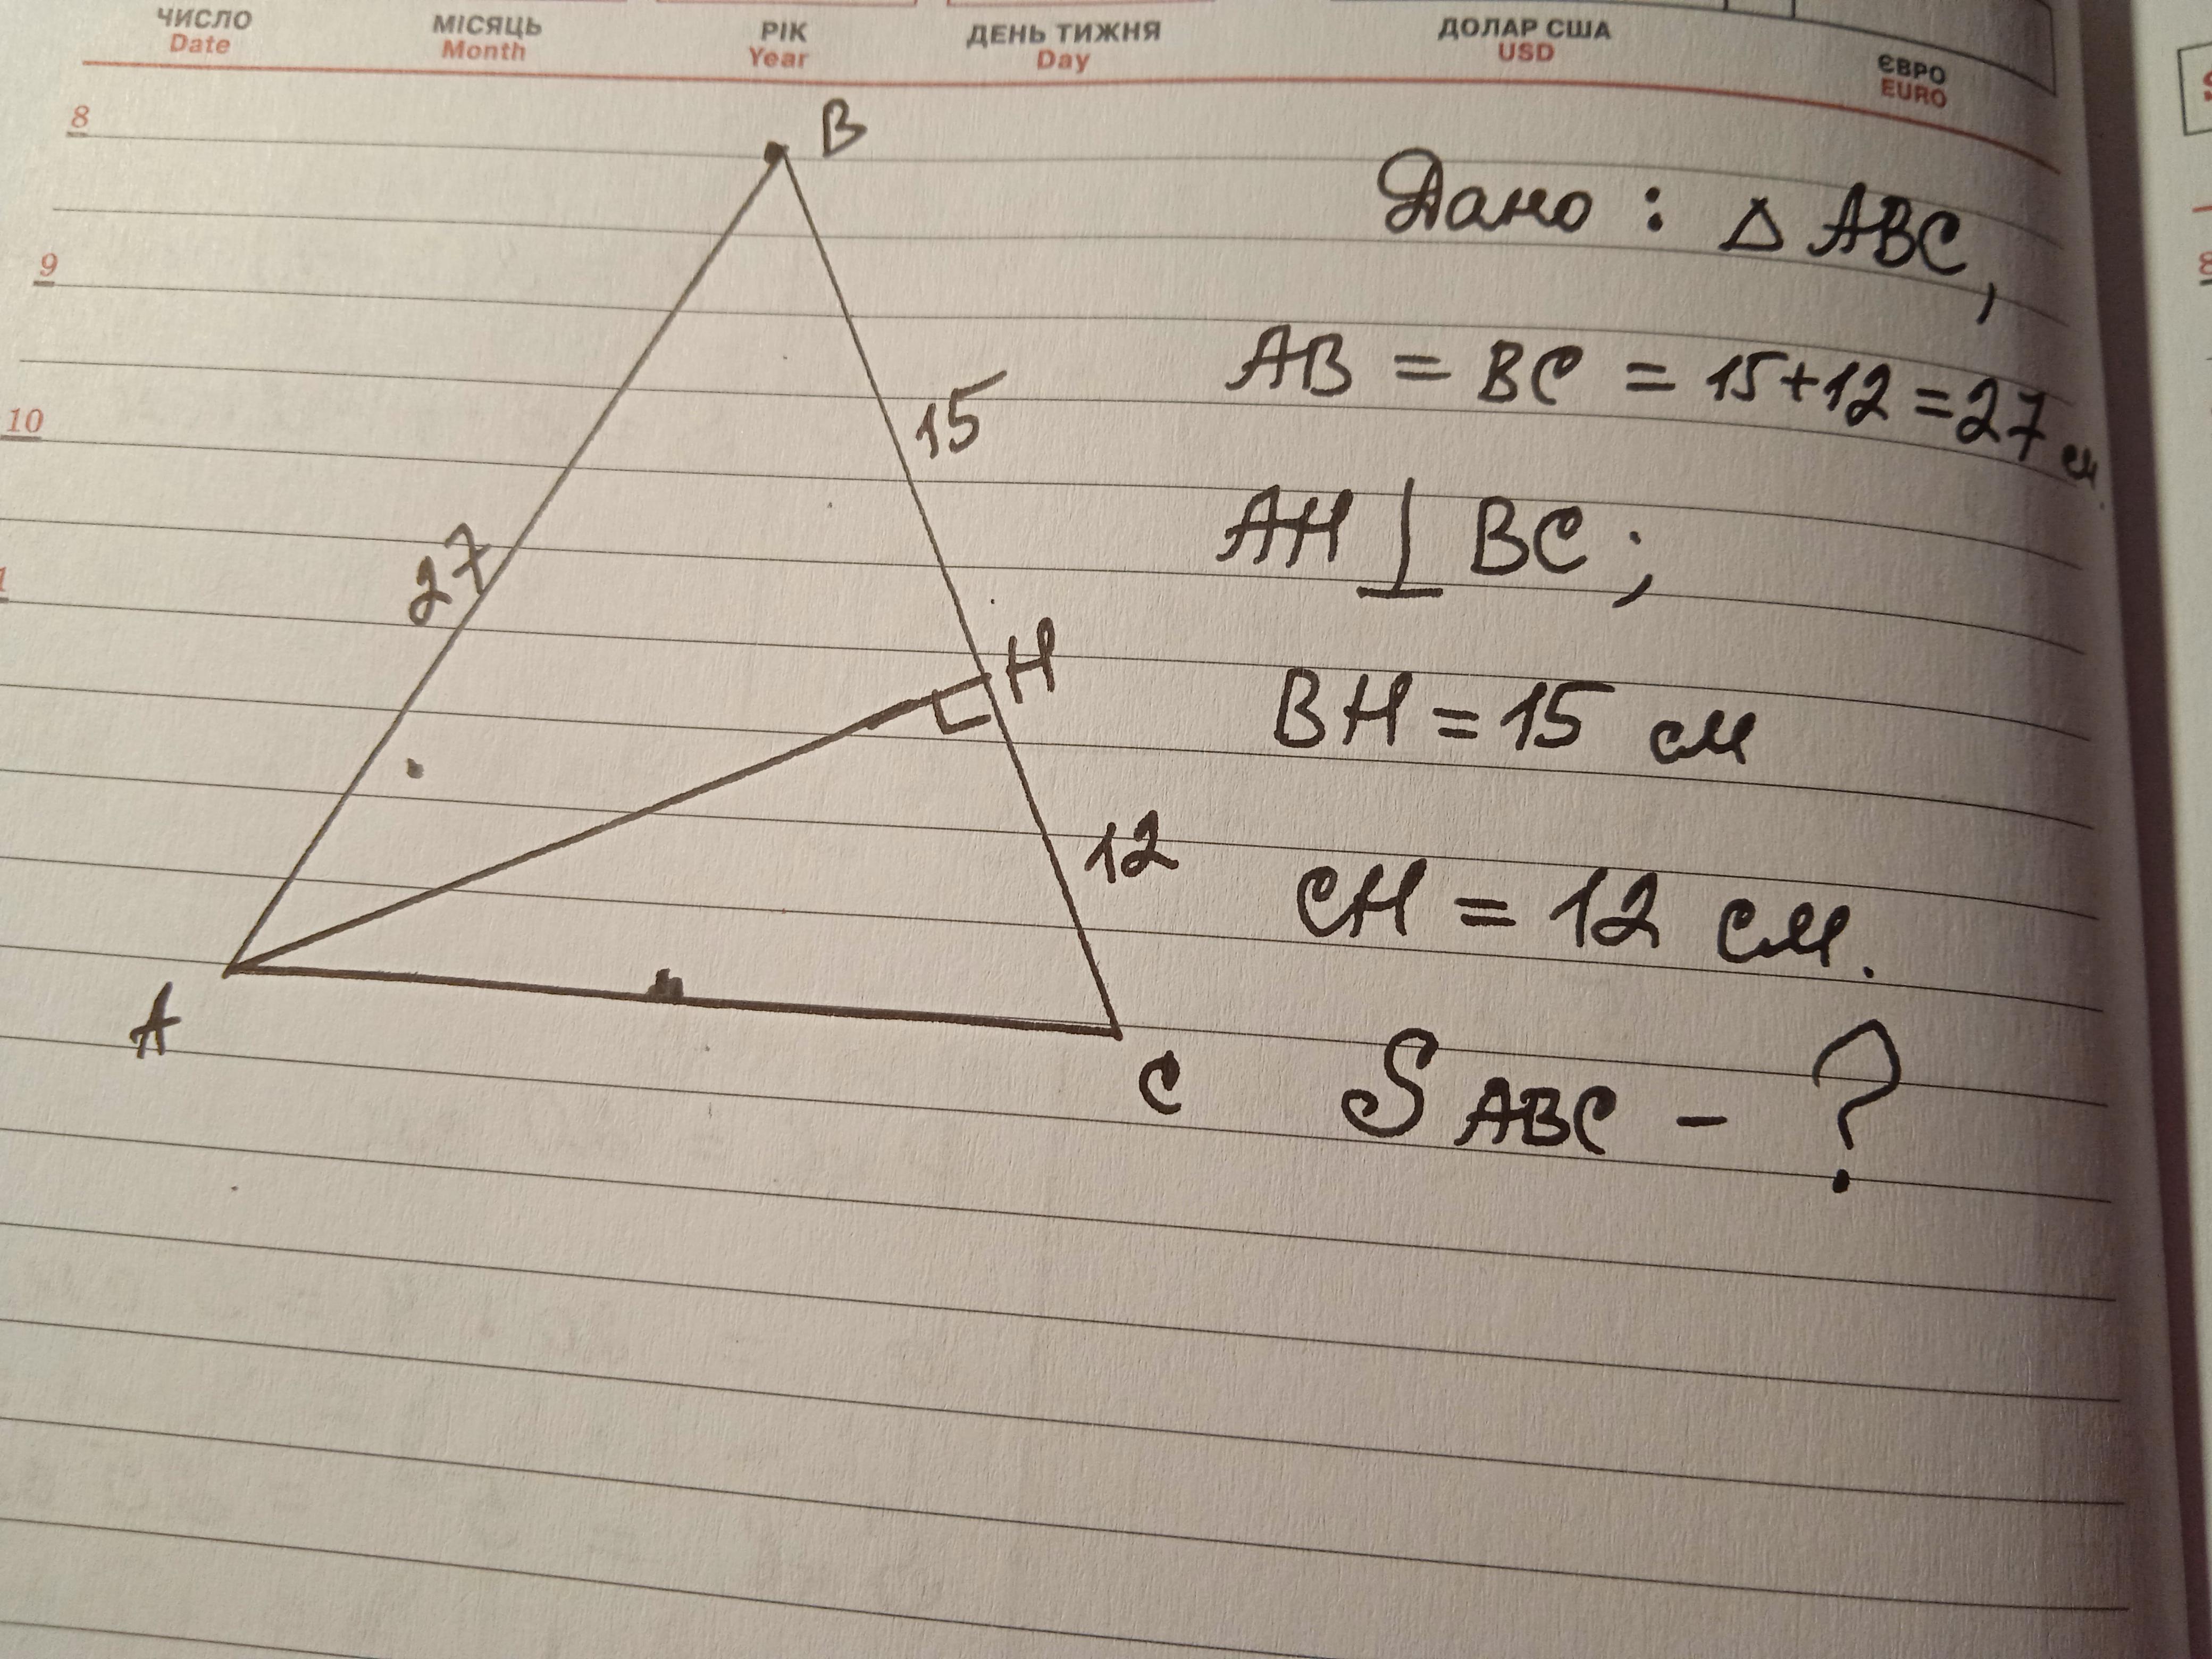 ЧИСЛО МІСЯЦЬ РІК ДЕНЬ ТИЖНЯ ДОЛАР США ЄВРО
Date Month Year Day USD EURO
8
B
Дано : △ ABC,
9
AB = BC = 15+12 = 27 см.
15
10
27
AH ⊥ BC ;
1
H
BH = 15 см
12
CH = 12 см.
A
C
S ABC - ?